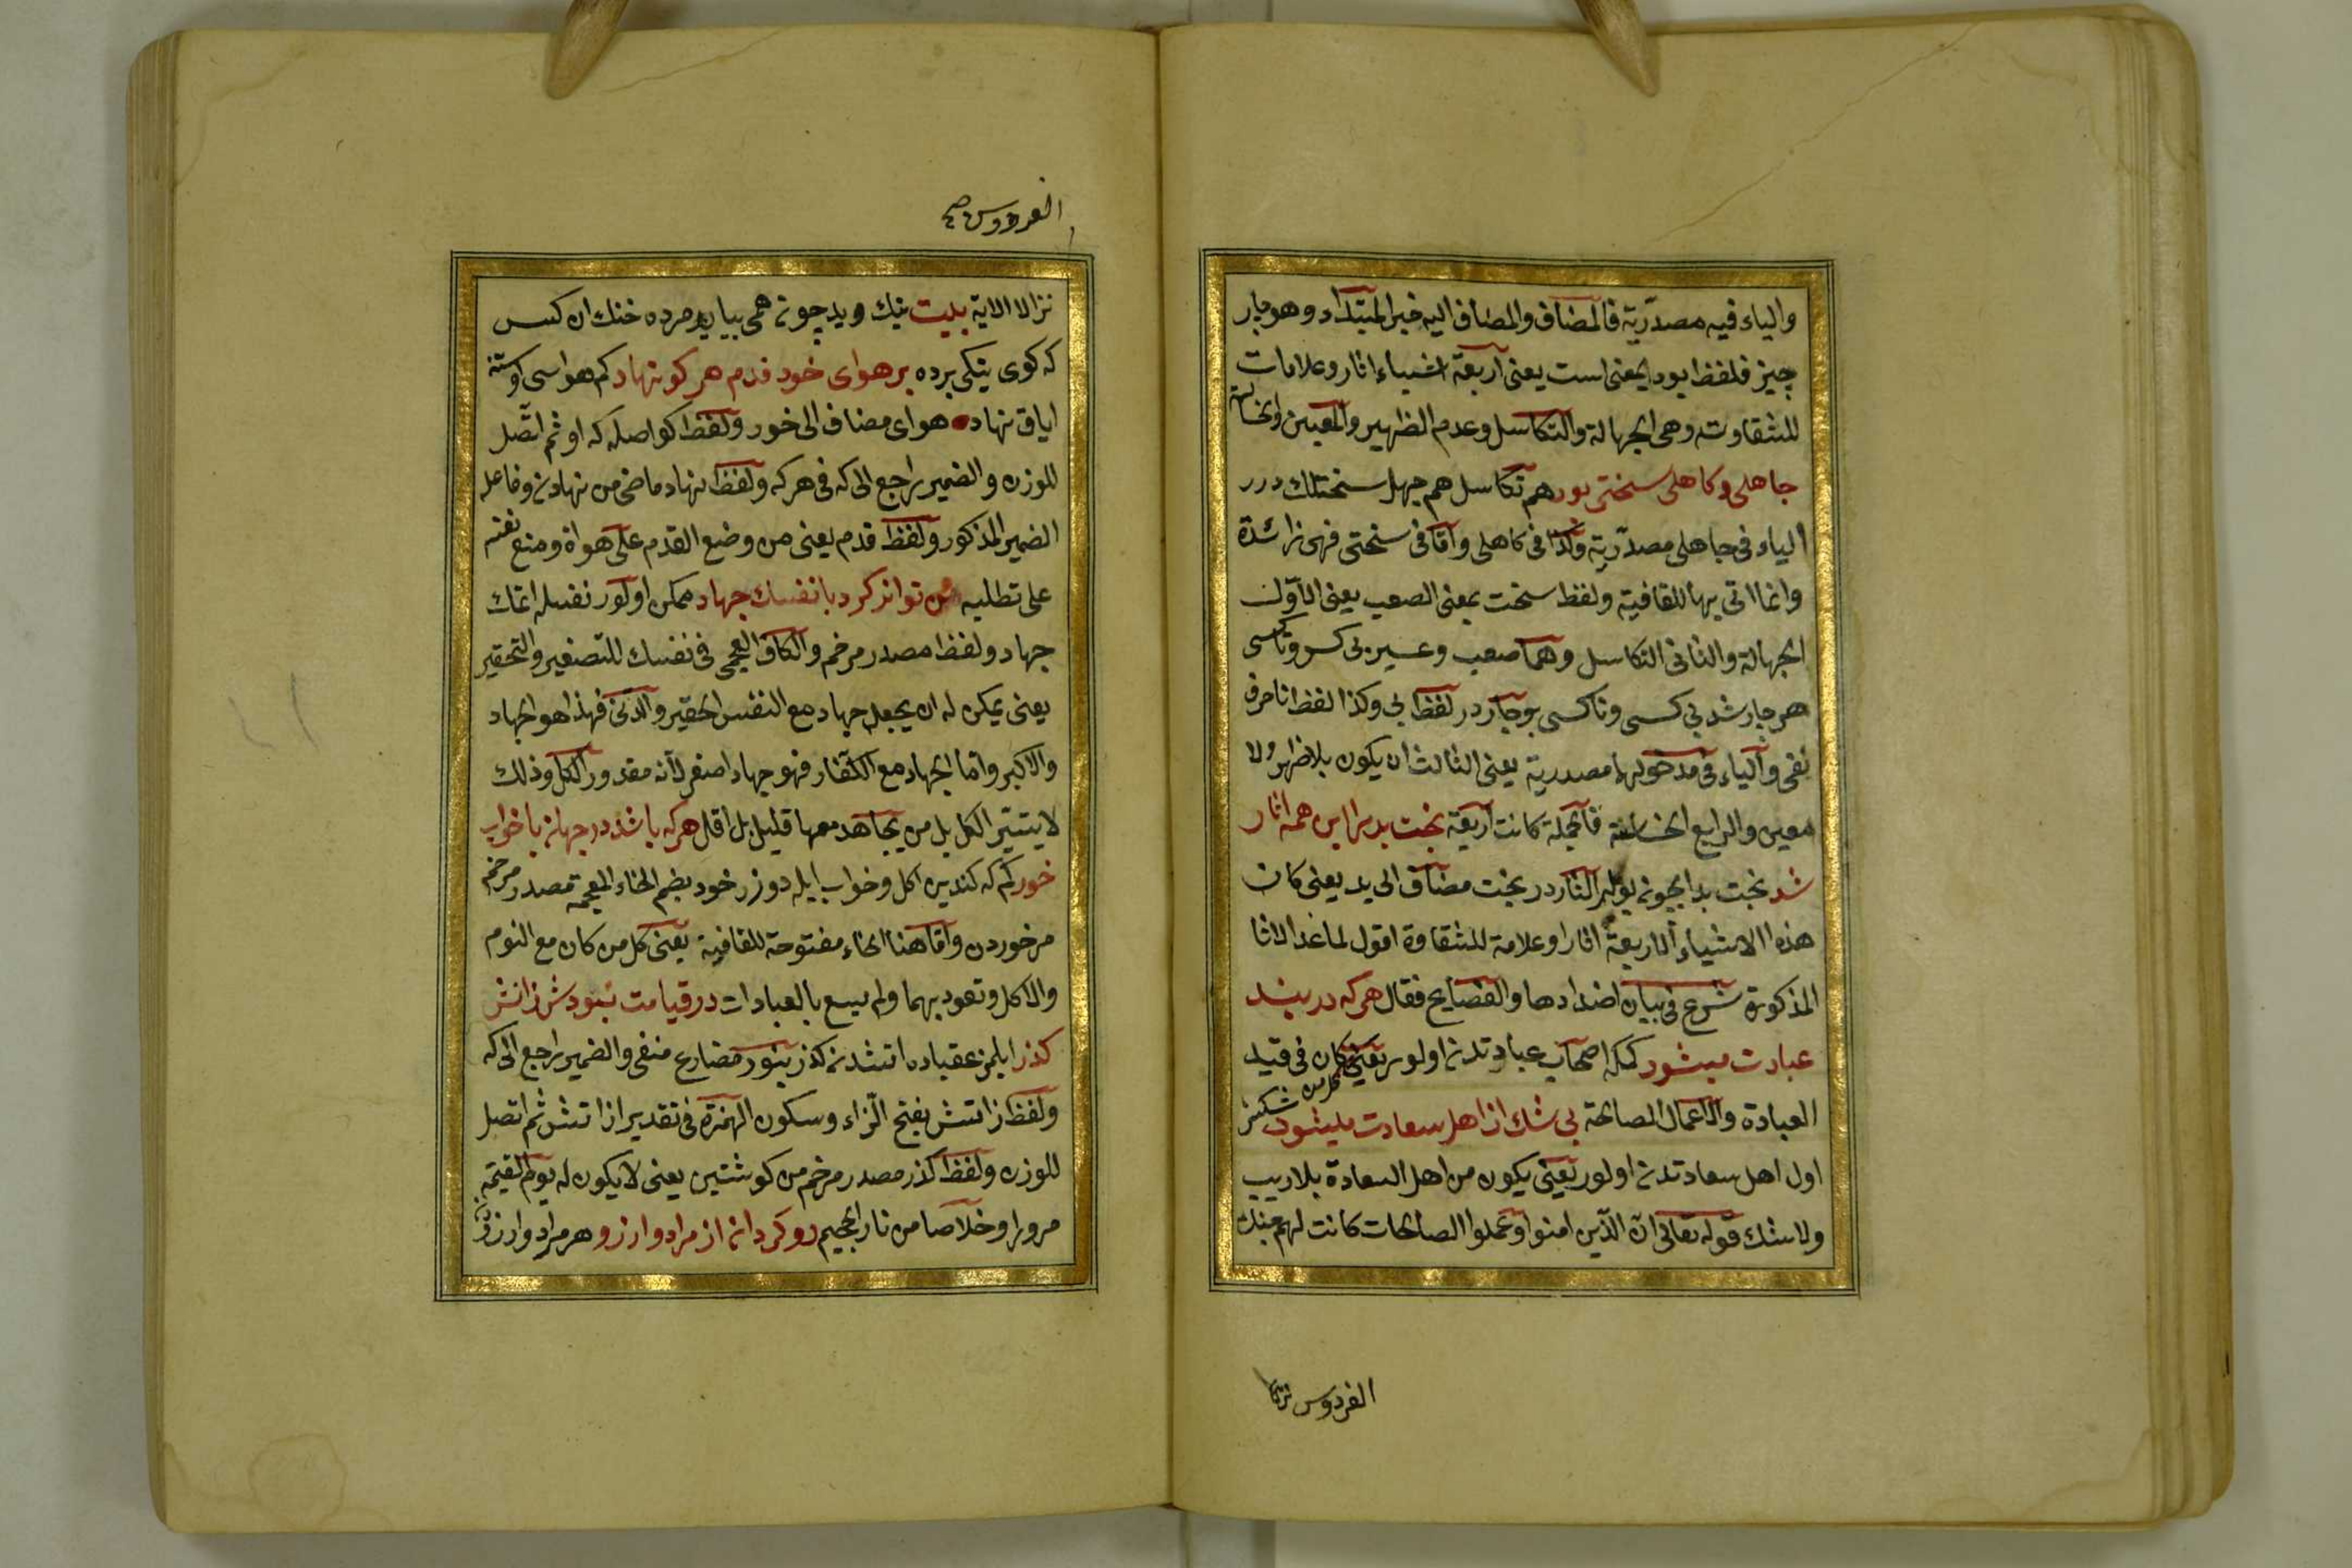 والياء فيه مصدرية فالمضاف والمضاف اليه خبر المبتداء وهو چار
چيز فلفظ بود بمعنى است يعنى اربعة اشياء اثار وعلامات
للشقاوت وهى الجهالة والتكاسل وعدم الظهير والمعين
جاهلى وكاهلى سختى بود هم تكاسل هم جهل سختلك درر
الياء فى جاهلى مصدرية وكذا فى كاهلى واما فى سختى فهى زائدة
وانما اتى بها للقافية ولفظ سخت بمعنى الصعب يعنى الاول
الجهالة والثانى التكاسل وهما صعب وعسير بى كسى وناكسى
هر چار شد بى كسى وناكسى بو چار در لفظ بى وكذا لفظ نا حرف
نفى والياء فى مدخولها مصدرية يعنى الثالث ان يكون بلا ظهر ولا
معين والرابع الخساسة فالجملة كانت اربعة بخت بد را اين همه اثار
شد بخت بد ايچون بونلر اثار در بخت مضاف الى بد يعنى كان
هذه الاشياء الاربعة اثارا وعلامة للشقاوة اقول لما عد الاثا
المذكورة شرع فى بيان اضدادها والفضايح فقال هر كه در بند
عبادت ميشود كمكه اصحاب عبادتدن اولور يعنى كان فى قيد
كل من
العبادة والاعمال الصالحة بى شك از اهل سعادت ميشود شكسز
اول اهل سعادتدن اولور يعنى يكون من اهل السعادة بلا ريب
ولا شك قوله تعالى ان الذين امنوا وعملوا الصالحات كانت لهم جنات
الفردوس نزلا
الفردوس صح
نزلا الاية بيت نيك وبد چون همى ببايد مرده خنك ان كس
كه كوى نيكى برده بر هواى خود قدم هر كو نهاد كم هواسى اوستنه
اياق نهاد هواى مضاف الى خود ولفظ كو اصله كه او ثم اتصل
للوزن والضمير راجع الى كه فى هر كه ولفظ نهاد ماضى من نهادن وفاعله
الضمير المذكور ولفظ قدم يعنى من وضع القدم على هواه ومنع نفسه
على تطلبه تواند كرد با نفسك جهاد ممكن اولور نفسله اتمك
جهاد ولفظ مصدر مرخم والكاف العجمى فى نفسك للتصغير والتحقير
يعنى يمكن له ان يجعل جهاد مع النفس الحقير والدنى فهذا هو الجهاد
والاكبر واما الجهاد مع الكفار فهو جهاد اصغر لانه مقدور الكل وذلك
لا يتيسر الكل بل من يجاهد معها قليل بل اقل هر كه باشد در جهان با خواب
خور كم كه كندين اكل وخواب ايله دوزر خود بضم الخاء المعجمة مصدر مرخم
من خوردن واما هنا الخاء مفتوحة للقافية يعنى كل من كان مع النوم
والاكل وتعود بهما ولم يسع بالعبادات در قيامت نبودش زاتش
كذر ايلمز عقباده اتشدن كذر نبود مضارع منفى والضمير راجع الى كه
ولفظ زاتش بفتح الزاء وسكون الهمزة فى تقدير از اتش ثم اتصل
للوزن ولفظ كذر مصدر مرخم من كوشتين يعنى لا يكون له يوم القيمة
مرورا وخلاصا من نار الجحيم رو كردان از مراد وارزو هر مراد وارزودن